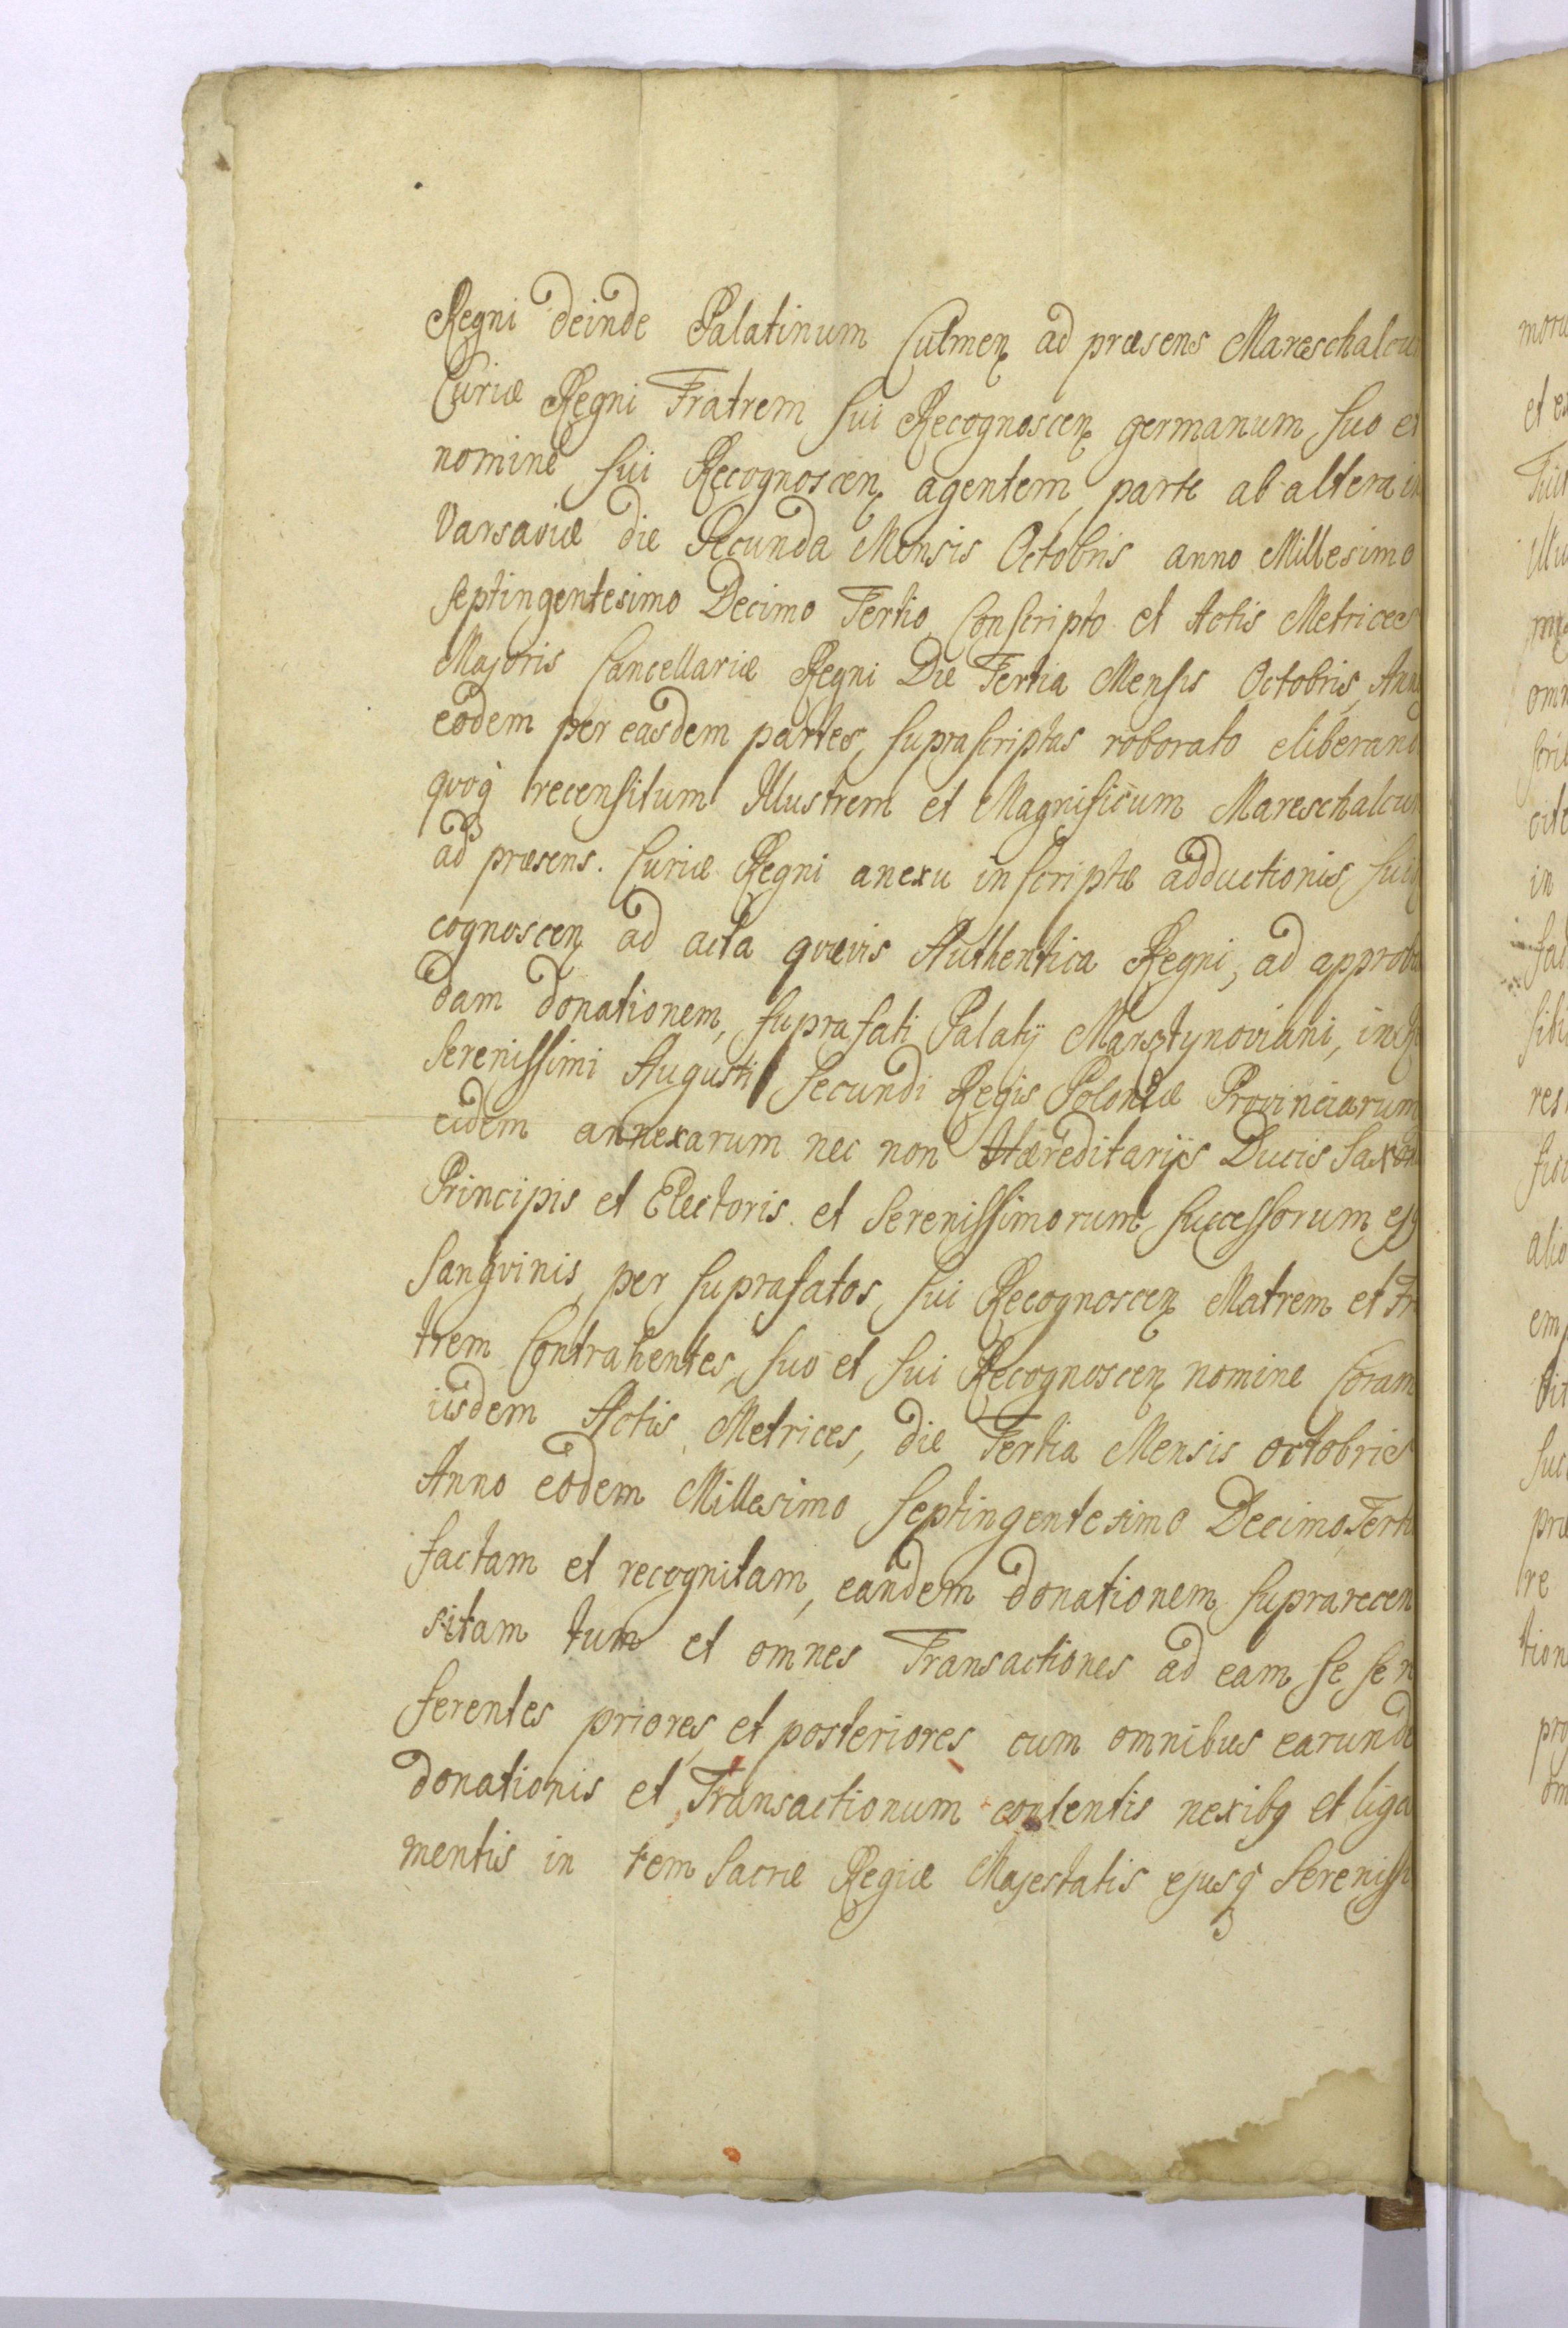 Regni deinde Palatinum Culmen ad præsens Mareschalcu
Curiæ Regni Fratrem sui Recognoscen germanum suo et
nomine sui Recognoscen agentem, parte ab altera in
Varsaviæ die Secunda Mensis Octobris anno Millesimo
septingentesimo Decimo Tertio conscripto et Actis Metrices
Majoris Cancellariæ Regni Die Tertia Mensis Octobris, Anno
eodem per easdem partes, suprascriptas roborato eliberand
qvoq recensitum Illustrem et Magnificum Mareschalcum
ad præsens. Curiæ Regni anexu inscriptæ adductionis sui
cognoscen ad acta qvævis Authentica Regni, ad approba
dam donationem, suprafati Palatij Marsztynoviani, in
Serenissimi Augusti Secundi Regis Poloniæ Provinciarum
eidem annexarum nec non Hæreditarijs Ducis Saxon
Principis et Electoris. et Serenissimorum successorum ejq
Sangvinis, per suprafatos, sui Recognoscen Matrem et Fr
trem Contrahentes, suo et sui Recognoscen nomine Coram
iisdem Actis Metrices, die Tertia Mensis octobris
Anno eodem Millesimo septingentesimo Decimo Terti
factam et recognitam, eandem donationem suprarecen
sitam tum et omnes Transactiones ad eam se se re
ferentes priores et posteriores cum omnibus earunde
donationis et Transactionum contentis nexibq et liga
mentis in rem Sacræ Regiæ Majestatis ejusq Serenissi
moru
et e
omn
in
res
alio
em
præ
re
tion
pro
om